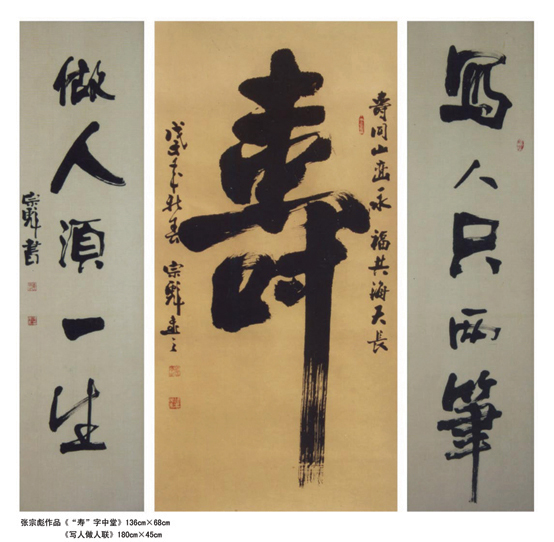 寫人只两筆
壽同山峦永 福共海天長
壽
宗彪
做人須一生
宗彪書
张宗彪作品《“寿”字中堂》136cm×68cm
《写人做人联》180cm×45cm